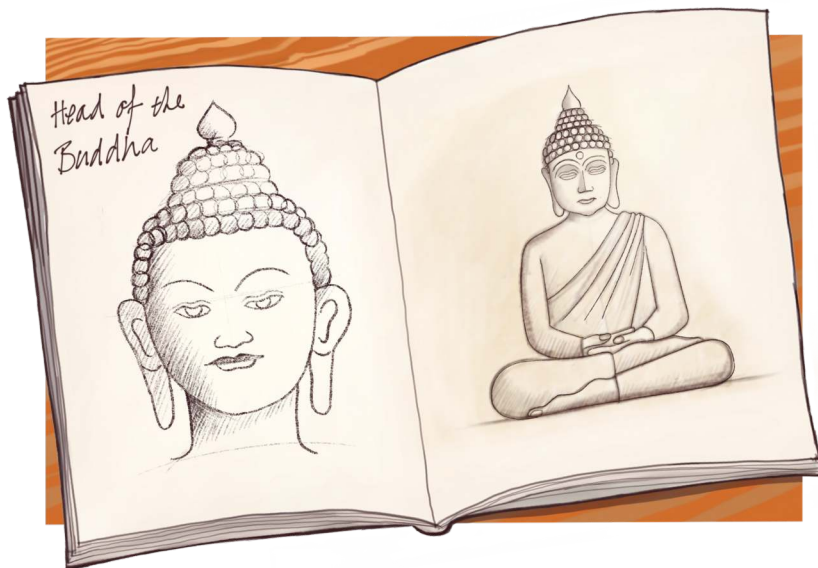 Head of the
Buddha